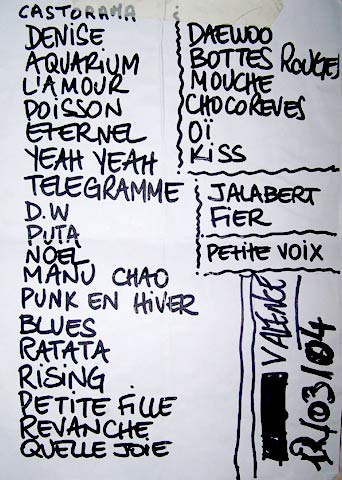 CASTORAMA
DENISE
AQUARIUM
L'AMOUR
POISSON
ETERNEL
YEAH YEAH
TELEGRAMME
D.W
PUTA
NOËL
MANU CHAO
PUNK EN HIVER
BLUES
RATATA
RISING
PETITE FILLE
REVANCHE
QUELLE JOIE
DAEWOO
BOTTES ROUGES
MOUCHE
CHOCOREVES
OÏ
KISS
JALABERT
FIER
PETITE VOIX
VALENCE
12/03/04